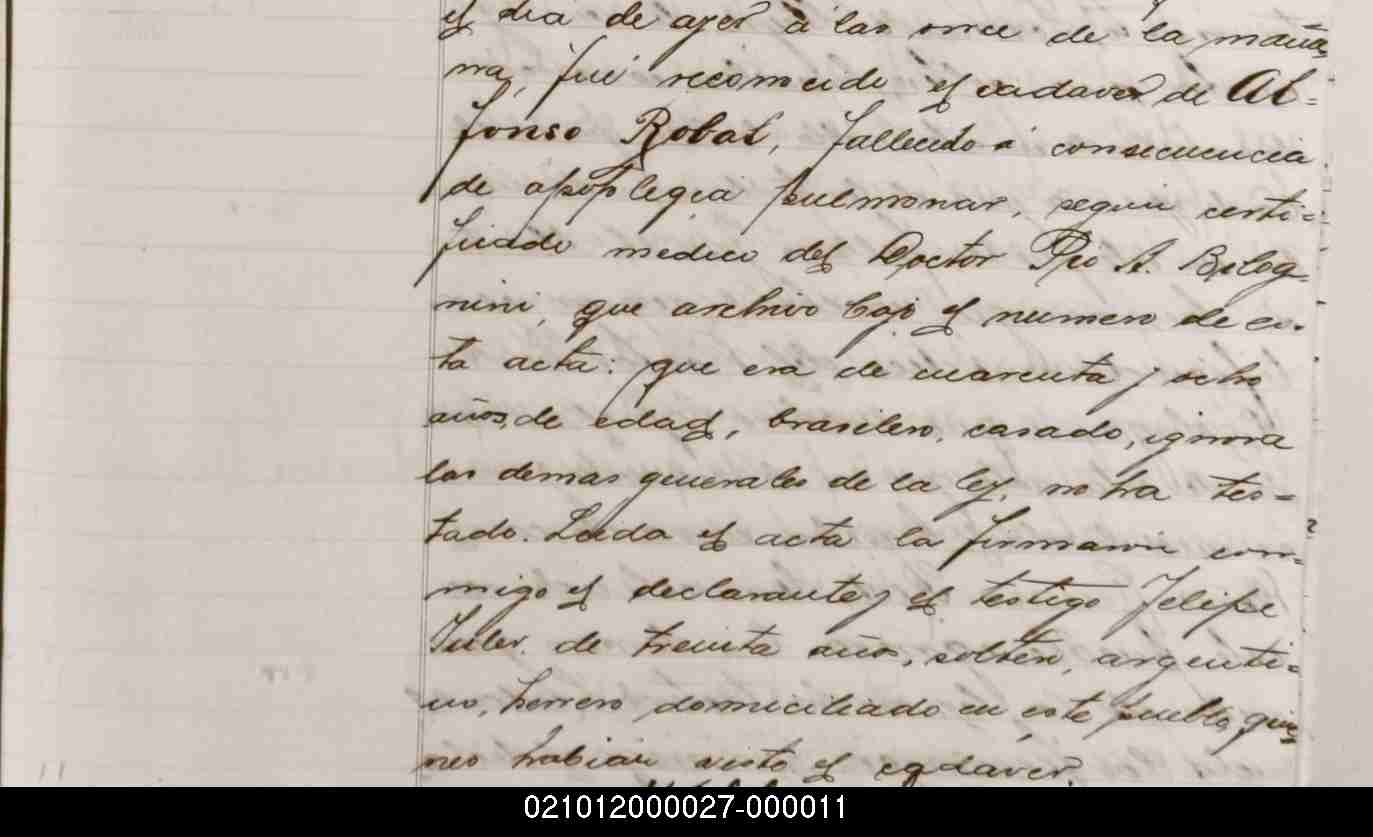 el dia de ayer á las once de la maña
na, fué reconocido el cadaver de Al=
fonso Robat, fallecido á consecuencia
de apoplegia pulmonar, segun certi=
ficado medico del Doctor Pio A. Bolog
nini, que archivo bajo el numero de es-
ta acta: que era de cuarenta y ocho
años, de edad, brasilero, casado, ignora
las demas generales de la ley, no ha tes=
tado. Leida el acta la firmaron con-
migo el declarante y el testigo Felipe
de treinta años, soltero, argenti=
no, herrero domiciliado en este pueblo, quie
nes habian visto el cadaver.
11
021012000027-000011